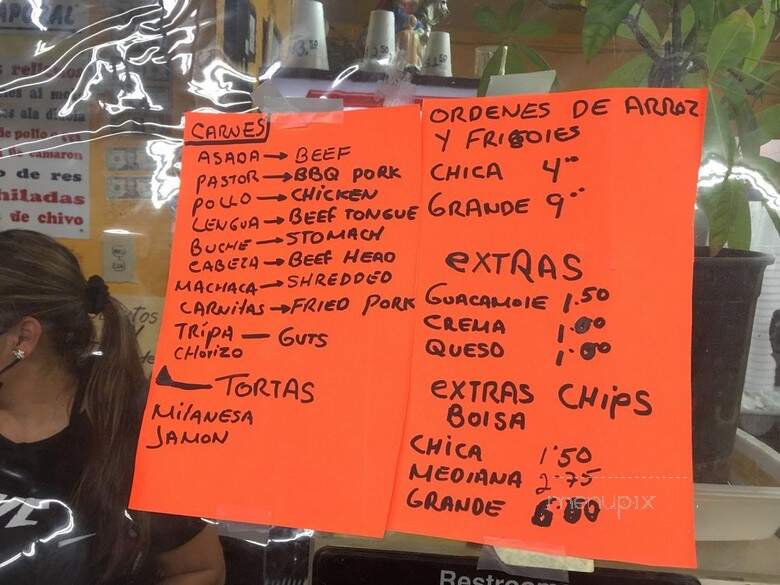 CARNES
ASADA → BEEF
PASTOR → BBQ PORK
POLLO → CHICKEN
LENGUA → BEEF TONGUE
BUCHE → STOMACH
CABEZA → BEEF HEAD
MACHACA → SHREDDED
CARNITAS → FRIED PORK
TRIPA — GUTS
CHORIZO
TORTAS
MILANESA
JAMON
ORDENES DE ARROZ
Y FRIJOIES
CHICA 4.00
GRANDE 9.00
EXTRAS
GUACAMOIE 1.50
CREMA 1.00
QUESO 1.00
EXTRAS CHIPS
BOISA
CHICA 1.50
MEDIANA 2.75
GRANDE 6.00
de pollo
camaron
de res
hiladas
de chivo
menupix